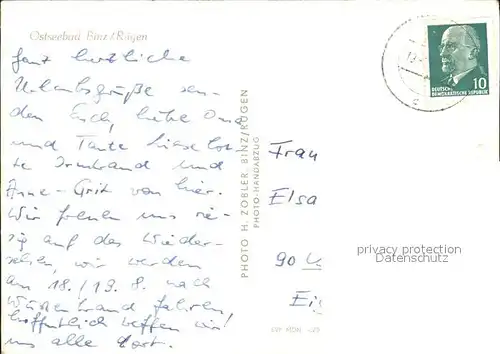 Ostseebad Binz / Rügen
ganz herzliche
Urlaubsgrüße sen-
den Euch, liebe Oma
und Tante Lieselot-
te Irmtraud und
Anne-Grit von hier.
Wir freuen uns rie-
sig auf das Wieder-
sehen, wir werden
am 18./19. 8. nach
Wüstenbrand fahren,
hoffentlich treffen wir
uns alle dort.
PHOTO H. ZOBLER BINZ/RÜGEN
PHOTO-HANDABZUG
10
DEUTSCHE
DEMOKRATISCHE REPUBLIK
Frau
Elsa
90
privacy protection
Datenschutz